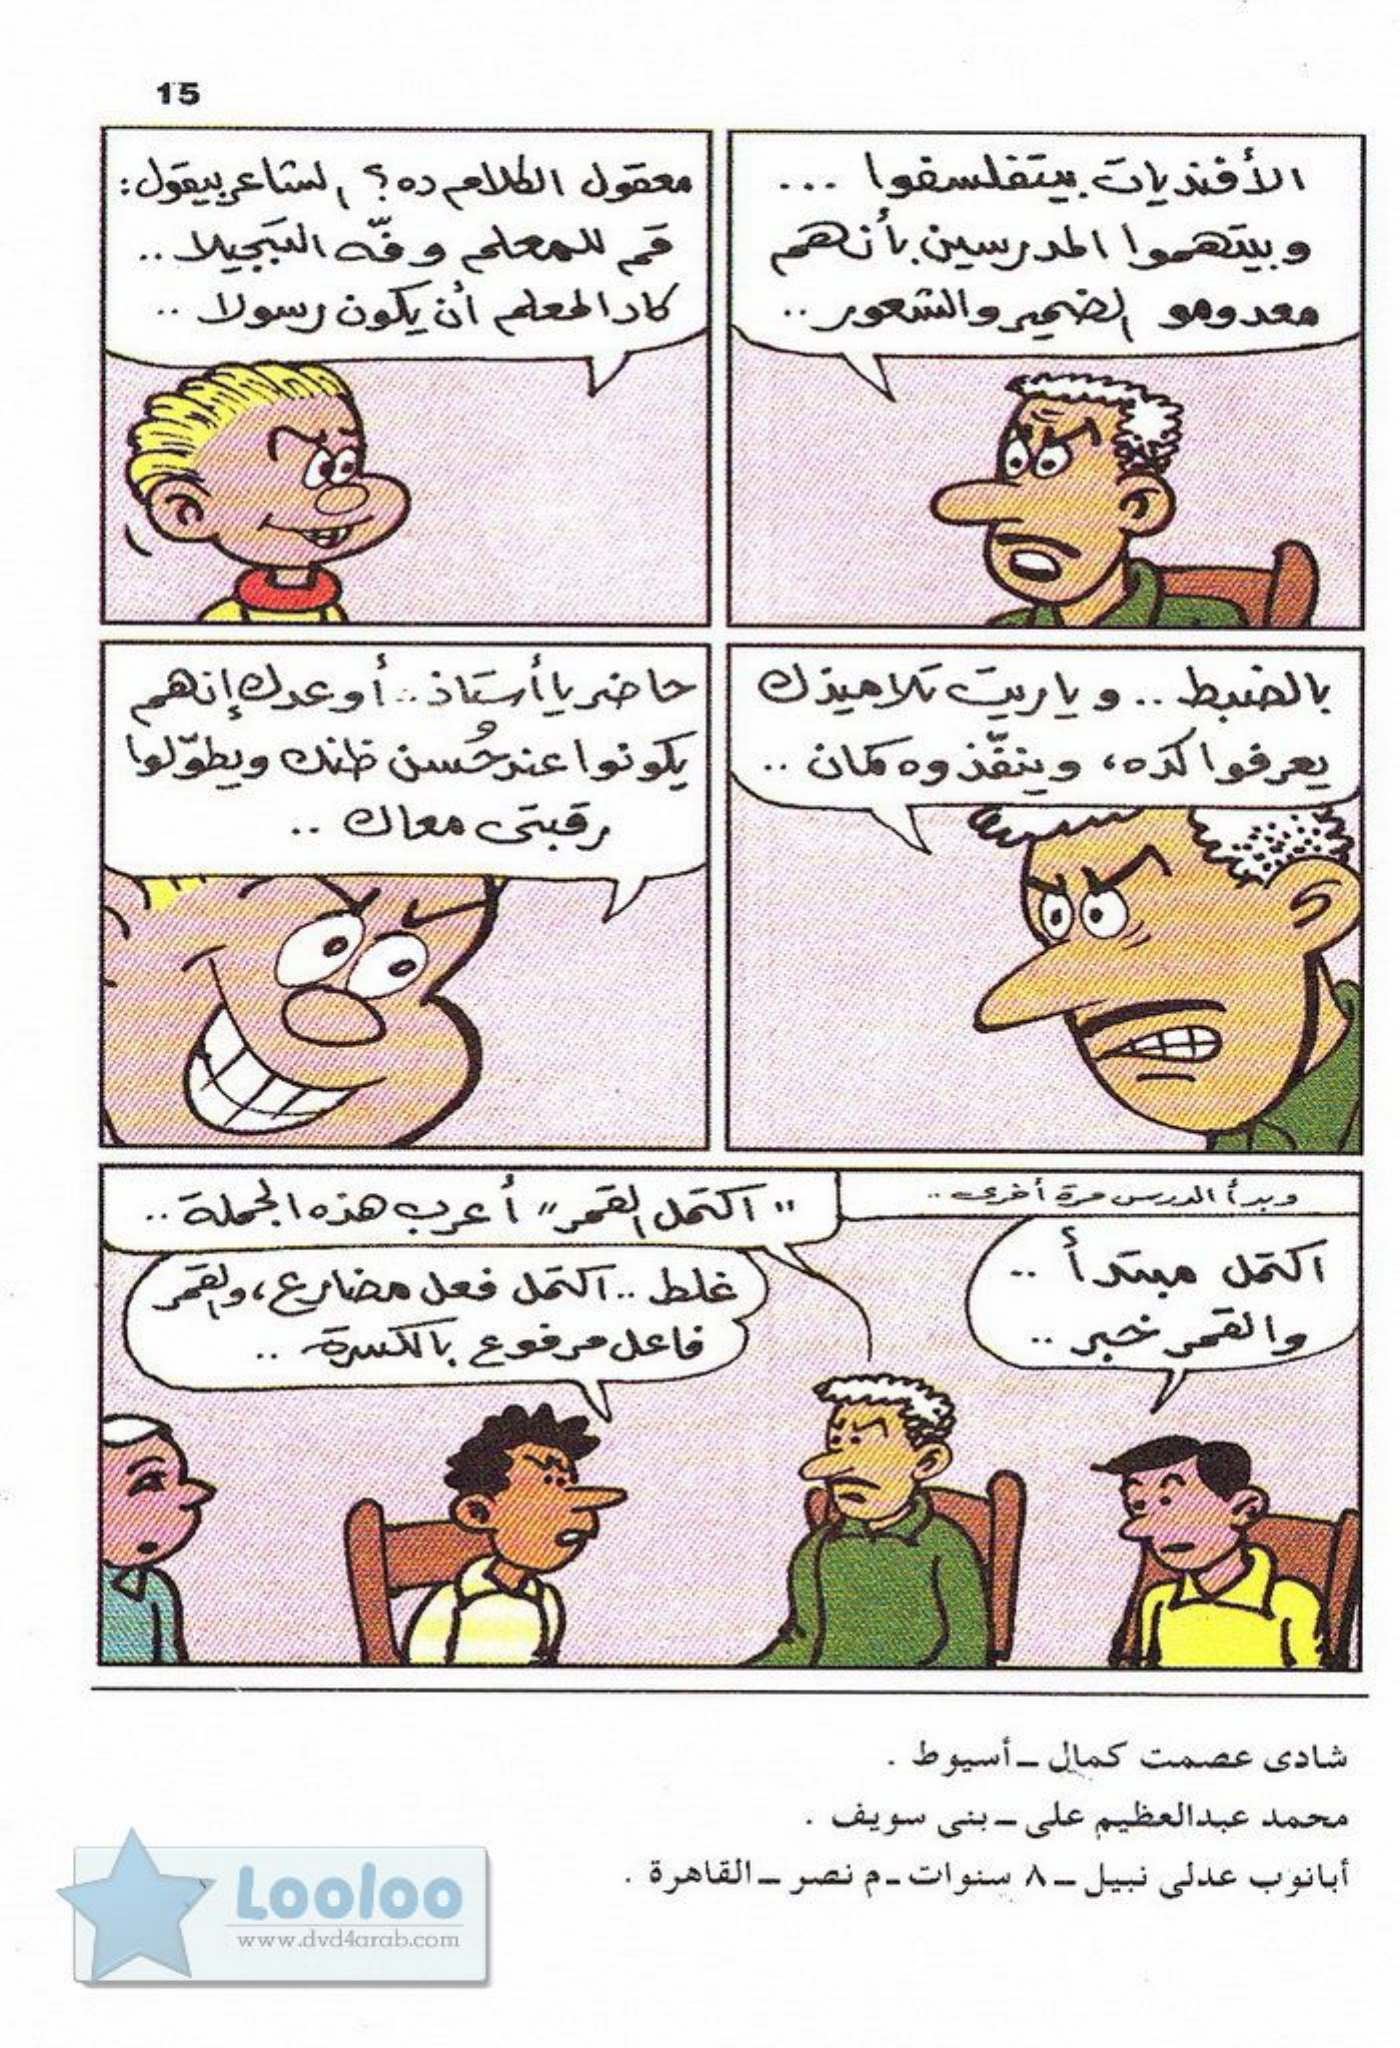 15
الأفنديات بيتفلسفوا ...
وبيتهموا المدرسين بأنهم
معدومو الضمير والشعور ..
معقول الكلام ده؟ الشاعر بيقول:
قم للمعلم وفّه التبجيلا ..
كاد المعلم أن يكون رسولا ..
بالضبط .. و ياريت تلاميذك
يعرفوا كده، وينفّذوه كمان ..
حاضر يا أستاذ .. أوعدك إنهم
يكونوا عند حُسن ظنك ويطوّلوا
رقبتى معاك ..
وبدأ الدرس مرة أخرى ..
"اكتمل القمر" أعرب هذه الجملة ..
اكتمل مبتدأ ..
والقمر خبر ..
غلط .. اكتمل فعل مضارع، والقمر
فاعل مرفوع بالكسرة ..
شادى عصمت كمال ــ أسيوط .
محمد عبدالعظيم على ــ بنى سويف .
أبانوب عدلى نبيل ــ ٨ سنوات ـ م نصر ــ القاهرة .
Looloo
www.dvd4arab.com